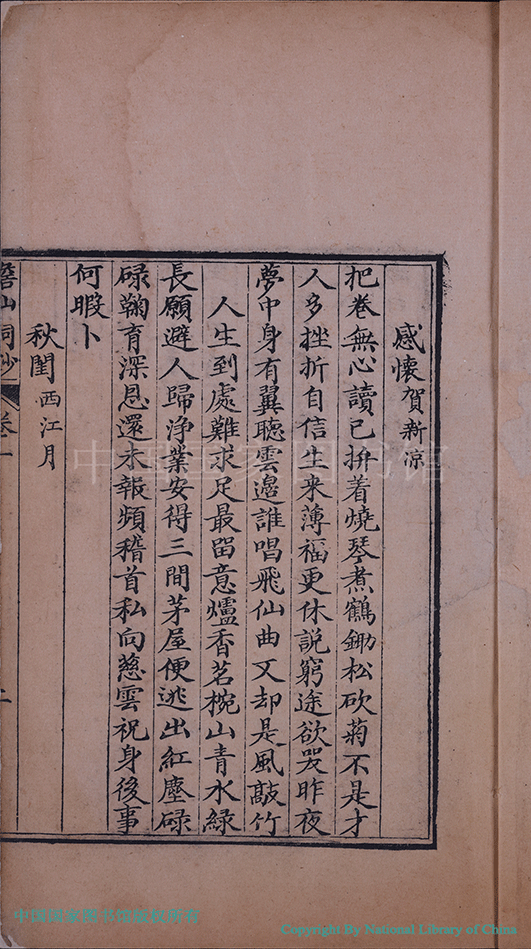 感懷賀新凉
把卷無心讀已拚着燒琴煮鶴鋤松砍菊不是才
人多挫折自信生来薄福更休說窮途欲哭昨夜
夢中身有翼聽雲邊誰唱飛仙曲又却是風敲竹
人生到處難求足最留意爐香茗椀山青水綠
長願避人歸淨業安得三間茅屋便逃出紅塵碌
碌鞠育深恩還未報頻稽首私向慈雲祝身後事
何暇卜
秋閨西江月
山詞鈔
卷一
二
中国国家图书馆
中国国家图书馆版权所有
Copyright By National Library of China